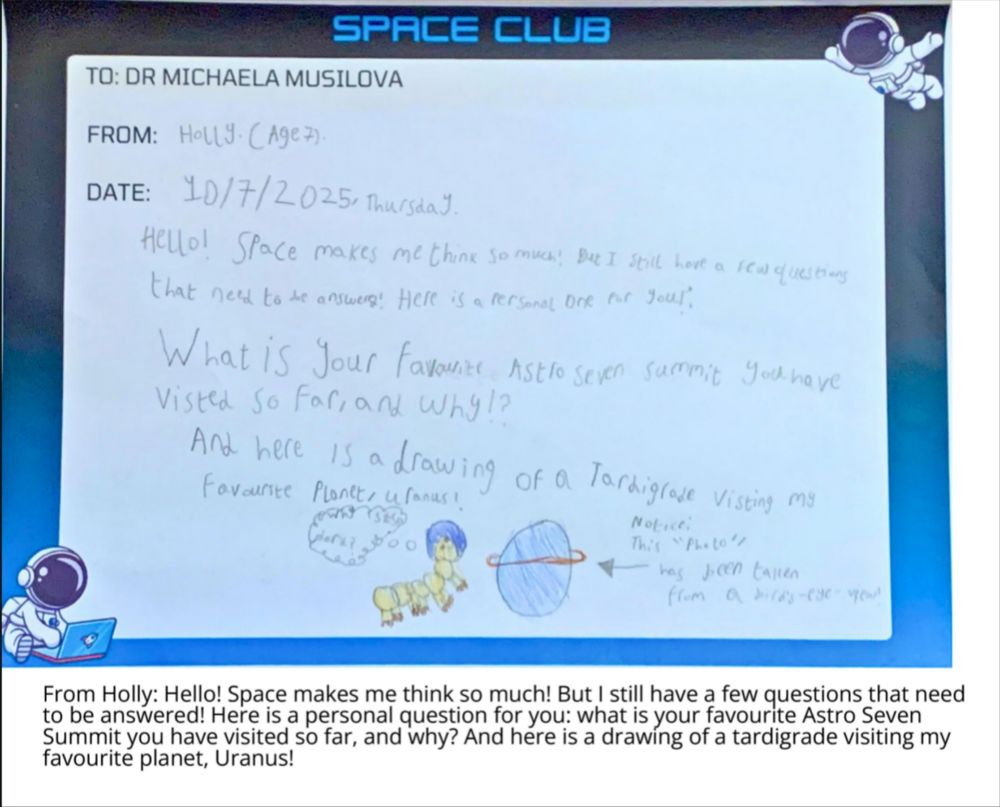 SPACE CLUB
TO: DR MICHAELA MUSILOVA
FROM: Holly. (Age 7).
DATE: 10/7/2025, Thursday.
Hello! Space makes me think so much! But I still have a few questions
that need to be answers! Here is a personal one for you!:
What is your favourite Astro seven summit you have
Visted so far, and why!?
And here is a drawing of a Tardigrade Visting my
Favourite Planet, Uranus!
Notice:
This "Photo"
has been taken
from a birds-eye-view!
From Holly: Hello! Space makes me think so much! But I still have a few questions that need
to be answered! Here is a personal question for you: what is your favourite Astro Seven
Summit you have visited so far, and why? And here is a drawing of a tardigrade visiting my
favourite planet, Uranus!